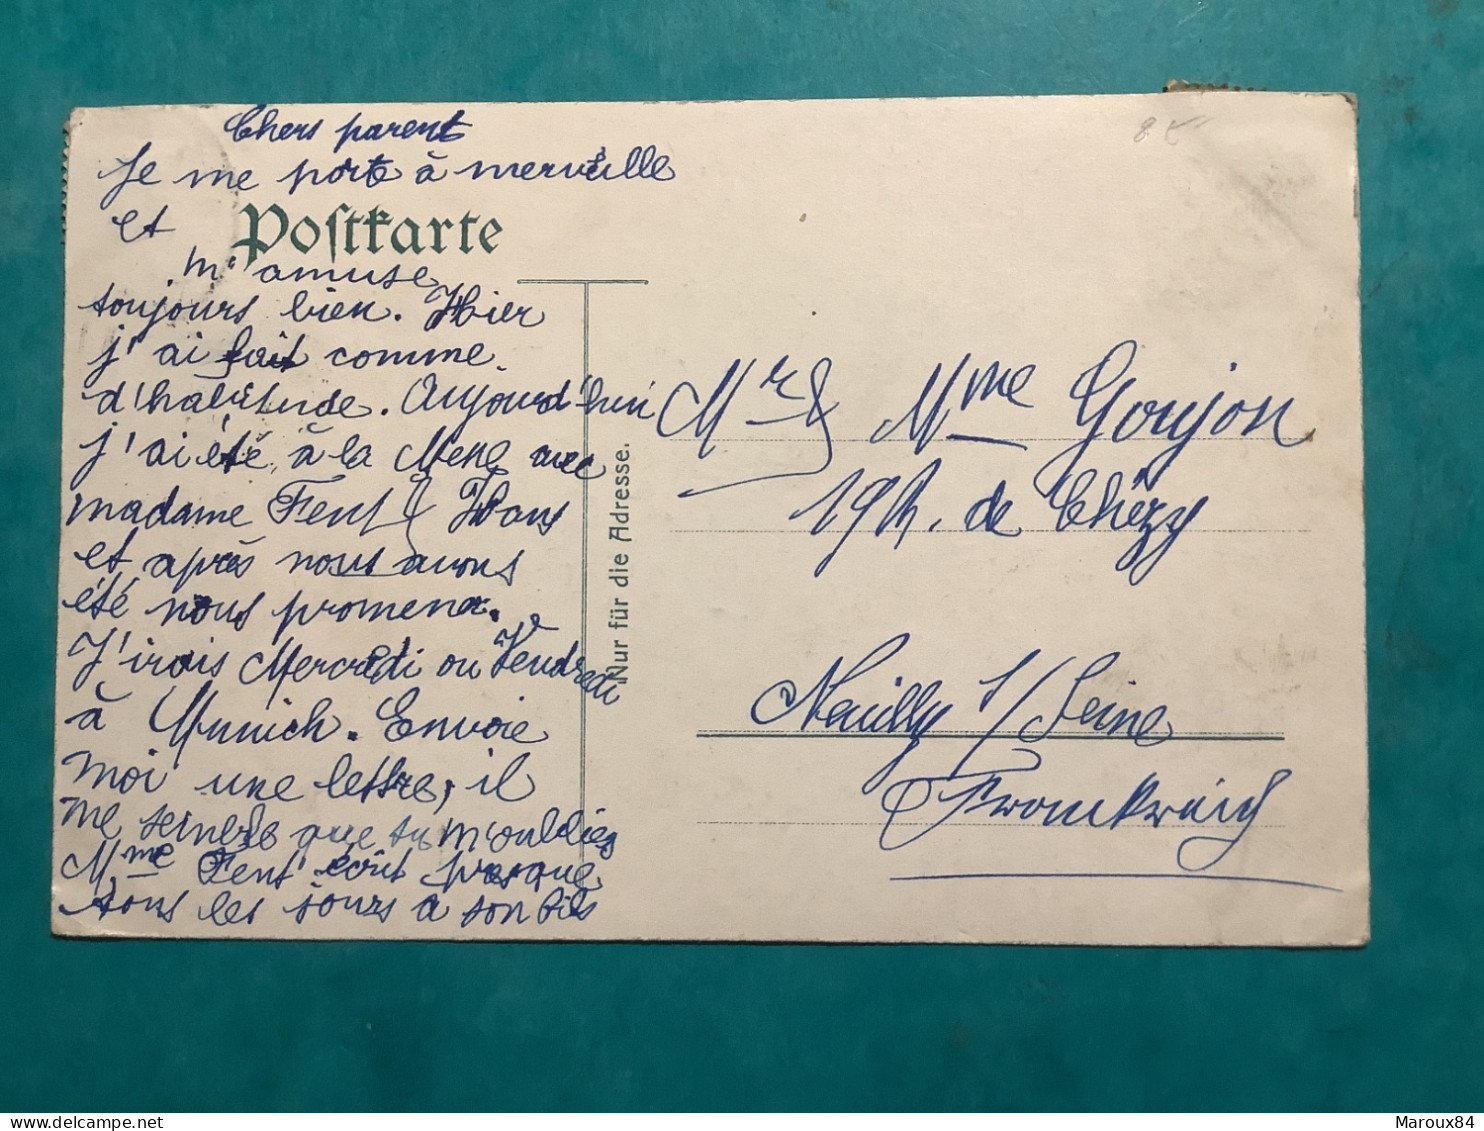 Chers parent
Je me porte à merveille
et
Postkarte
m'amuse
toujours bien. Hier
j'ai fait comme
d'habitude. Aujourd'hui
j'ai été à la Messe avec
madame Fent & Hans
et après nous avons
été nous promena.
J'irais Mercredi ou Vendredi
à Munich. Envoie
moi une lettre, il
me semble que tu m'oublies
Mme Fent écrit presque
tous les jours à son fils
Nur für die Adresse.
8 €
Mr & Mme Goujon
19 R. de Chézy
Neuilly s/Seine
Frankreich
Maroux84